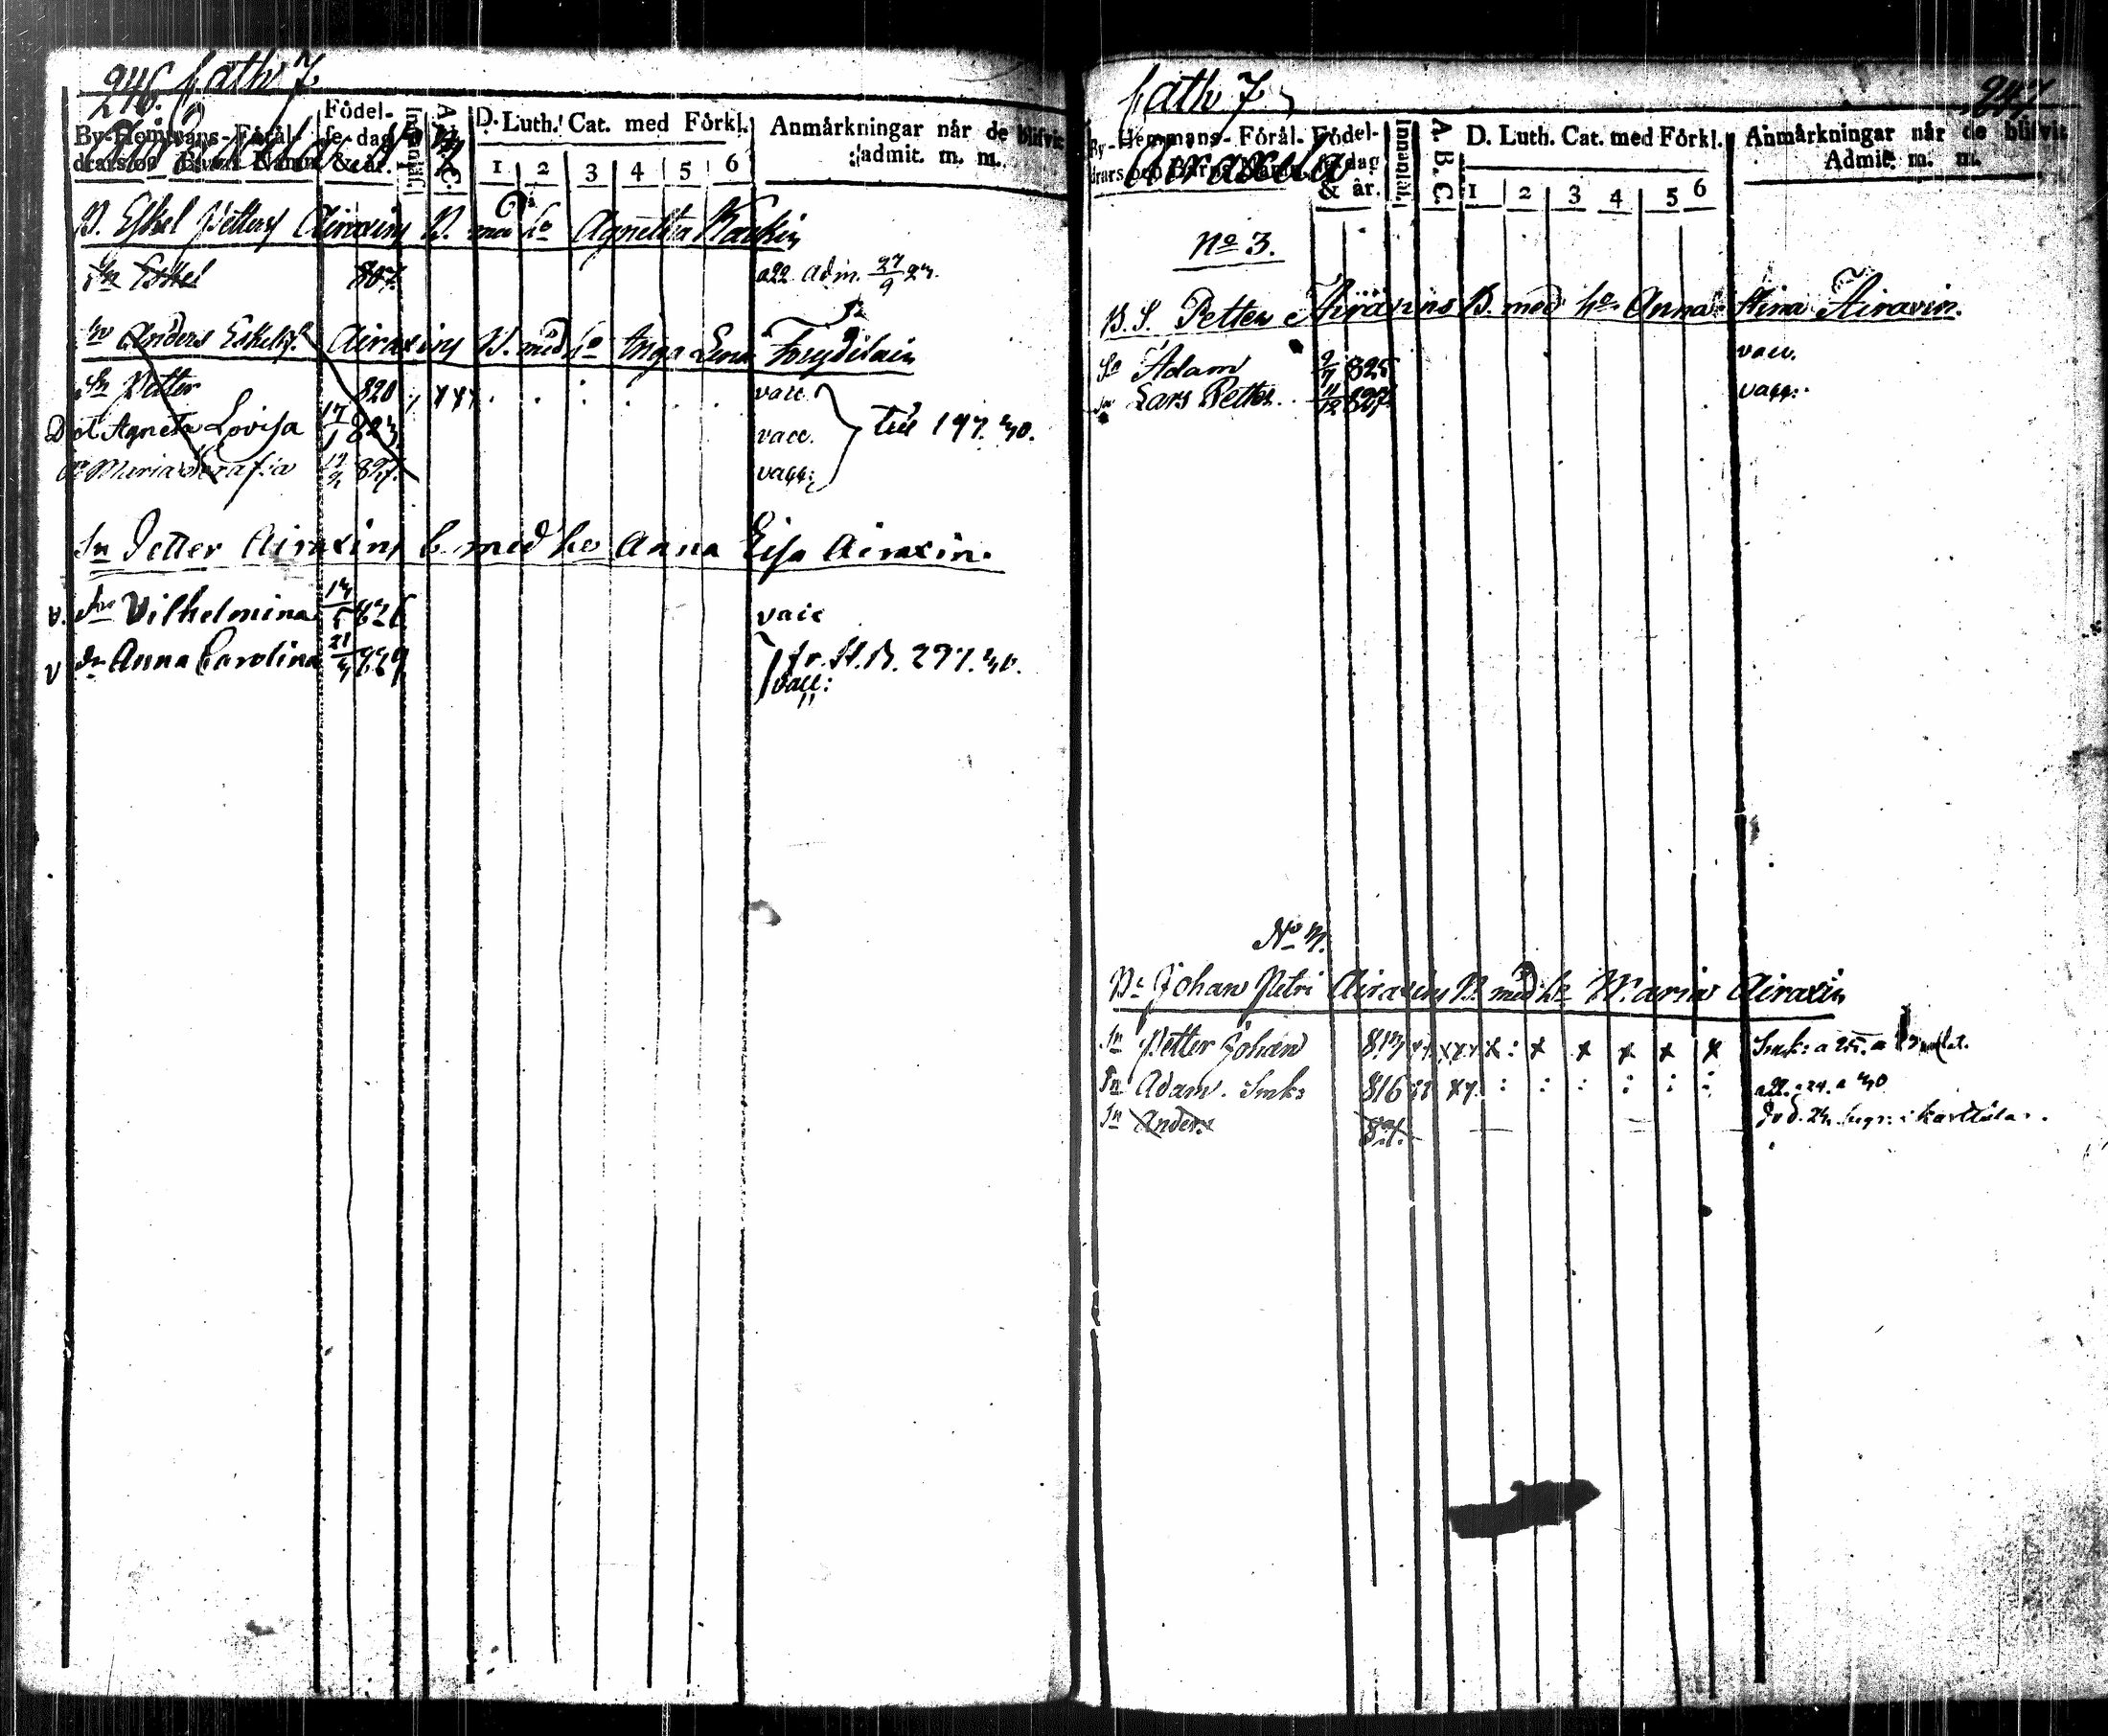 246. Cath 7
By-Hemmans-Föräl-
drars och Barns Namn
Födel-
se-dag
& år.
Innanläs.
A. B. C.
D. Luth. Cat. med Förkl.
1 2 3 4 5 6
Anmårkningar når de blifvit
admit. m. m.
B. Eskel Petters Airaxins B. med ho Agnetha Kaukin
Sn Eskel 807. a22 adm. 27/9 27.
Sn Anders Eskels. Airaxins B. med ho Inga Lena
Sn Petter 820 vacc.
Dot Agneta Lovisa 17/1 823 vacc. till 197. 40.
Dr Maria Serafia 827. vacc:
Sn Petter Airaxins b. med ho Anna Lisa Airaxin.
v. Vilhelmina 826 vacc
v dr Anna Carolina 21/3 829 fr. St. B. 297. 40.
vacc:
Cath 7
247
Airaxela
By-Hemmans-Föräl-
drars och Barns Namn
Födel-
se dag
& år.
Innanläs.
A. B. C.
D. Luth. Cat. med Förkl.
1 2 3 4 5 6
Anmårkningar når de blifvit
Admit. m. m.
No 3.
B. S. Petter Airaxins B. med ho Anna Stina Airaxin.
Sn Adam 9/7 825 vacc.
Sn Lars Petter. 11/12 827. vacc.
No 4.
Br Johan Petri Airaxins B. med ho Maria Airaxin
Sn Petter Johan 813 x x x x x x : x x x x x Smk: a 25. a
Sn Adam. Smk: 816 x x : : : : : : a22. : 24. a 40
Sn Anders